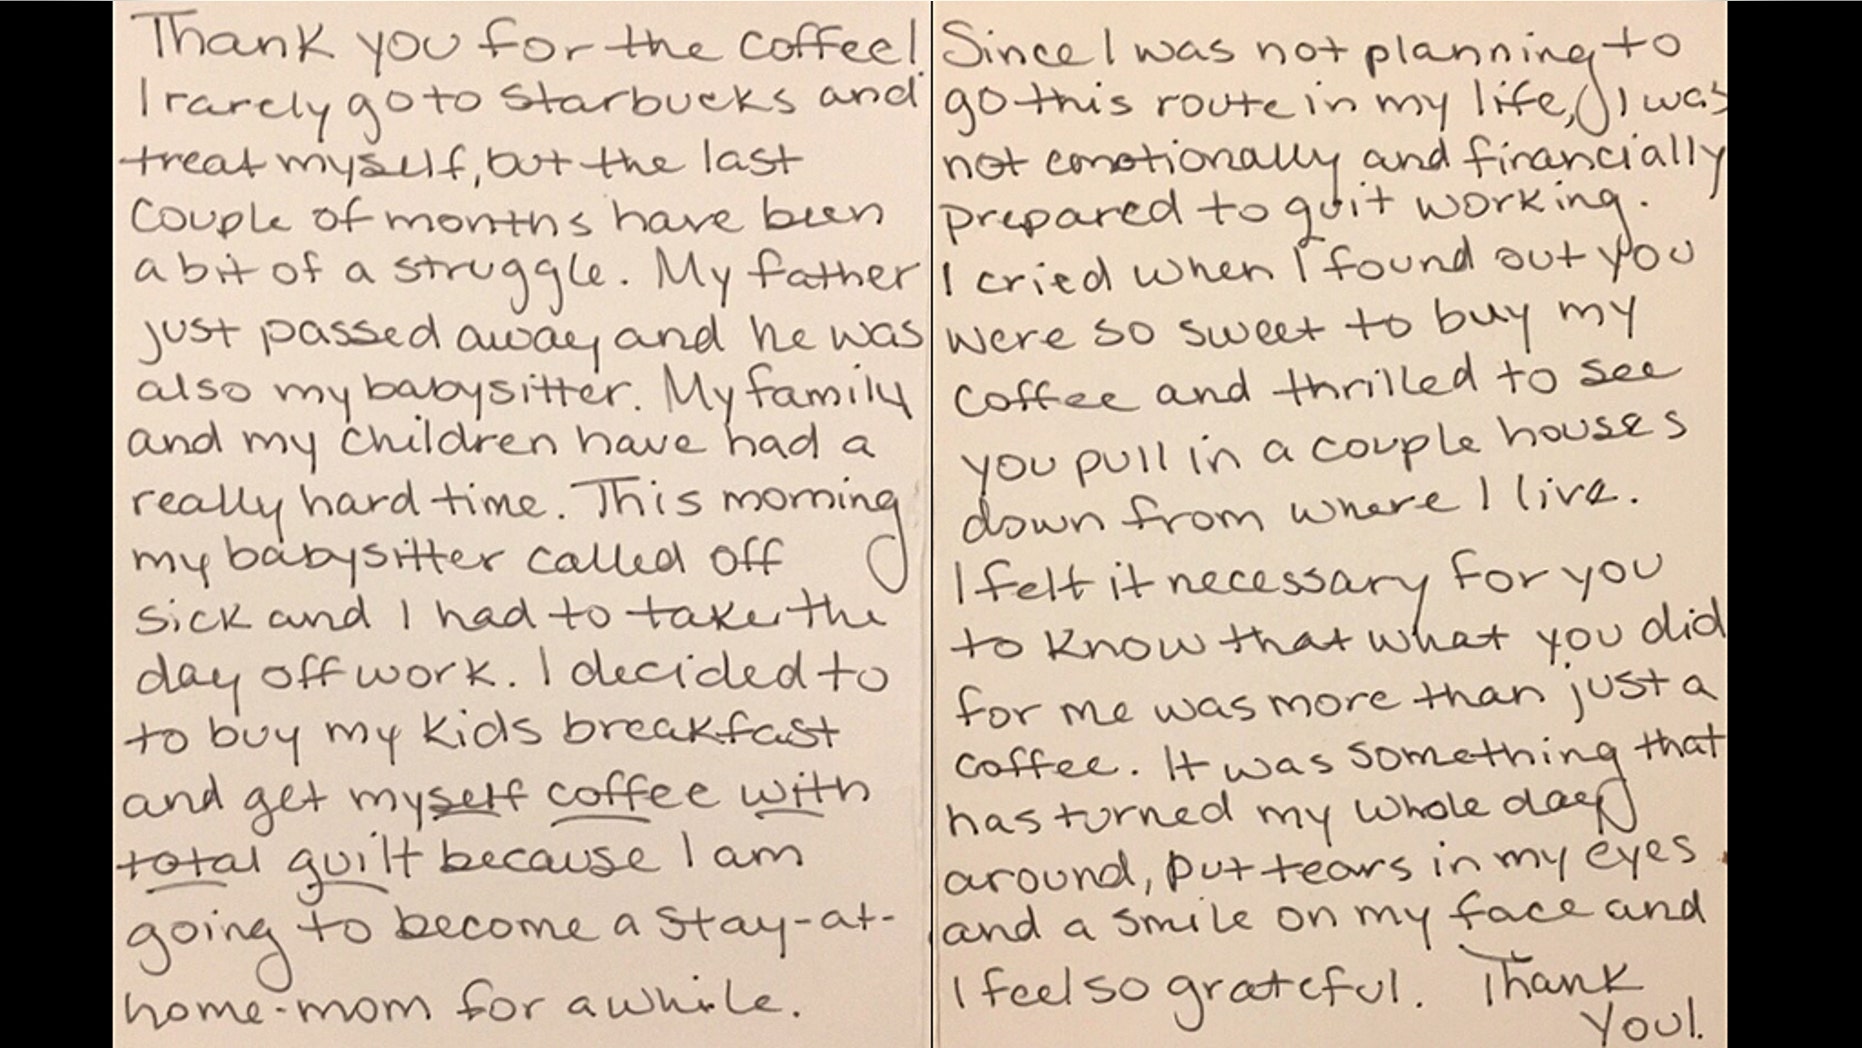 Thank you for the coffee!
I rarely go to Starbucks and
treat myself, but the last
couple of months have been
a bit of a struggle. My father
just passed away and he was
also my babysitter. My family
and my children have had a
really hard time. This morning
my babysitter called off
sick and I had to take the
day off work. I decided to
to buy my kids breakfast
and get myself coffee with
total guilt because I am
going to become a stay-at-
home-mom for awhile.
Since I was not planning to
go this route in my life, I was
not emotionally and financially
prepared to quit working.
I cried when I found out you
were so sweet to buy my
coffee and thrilled to see
you pull in a couple houses
down from where I live.
I felt it necessary for you
to know that what you did
for me was more than just a
coffee. It was something that
has turned my whole day
around, put tears in my eyes
and a smile on my face and
I feel so grateful. Thank
you!.